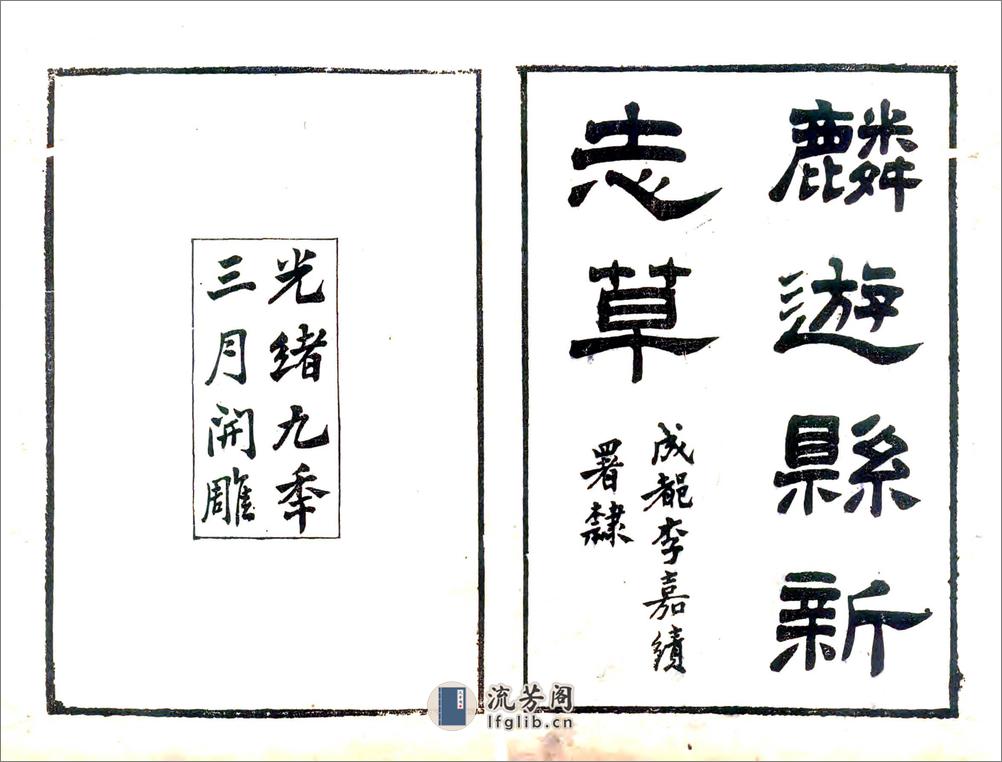 麟遊縣新
志草
成都李嘉績
署隸
光緒九年
三月開雕
流芳阁
lfglib.cn